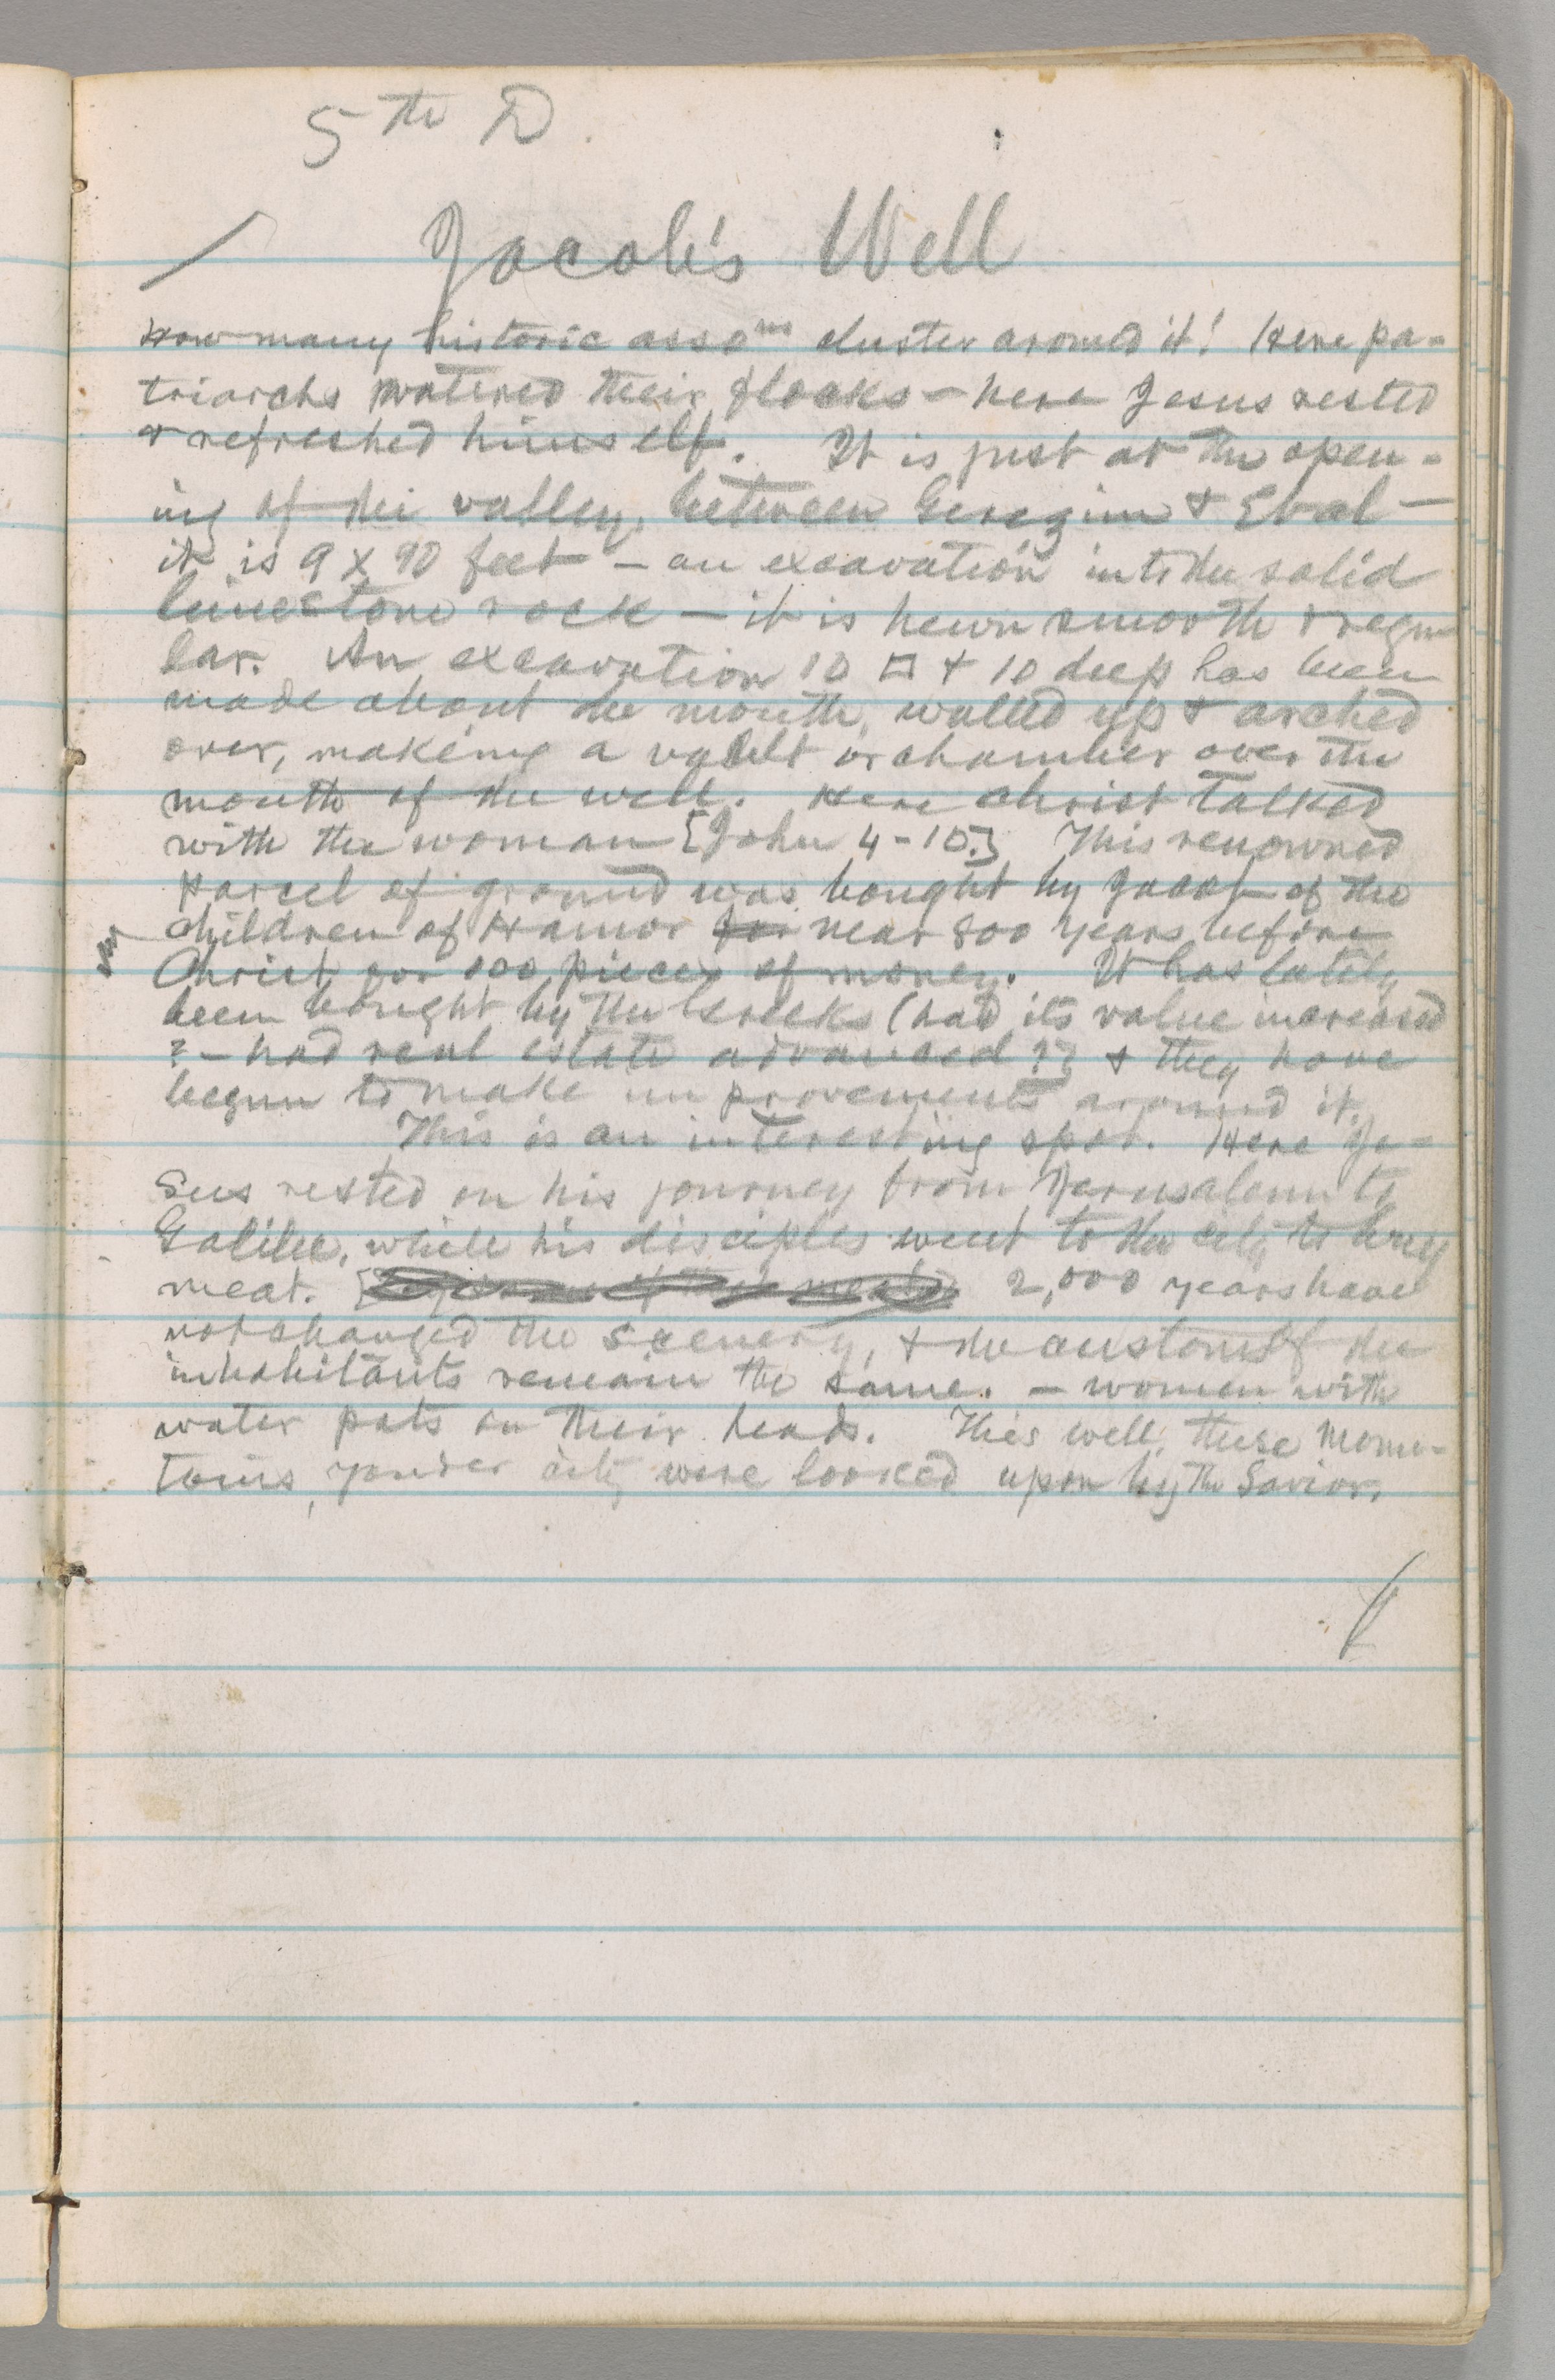 5th D.
Jacob's Well
How many historic assons cluster around it! Here pa-
triarchs watered their flocks - here Jesus rested
& refreshed himself. It is just at the open-
ing of the valley, between Gerezim & Ebal -
it is 9 x 90 feet - an excavation into the solid
limestone rock - it is hewn smooth & regu
lar. An excavation 10 □ & 10 deep has been
made about the mouth, walled up & arched
over, making a vault or chamber over the
mouth of the well. Here Christ talked
with the woman [John 4-10.] This renowned
parcel of ground was bought by Jacob of the
children of Hamor for near 800 years before
Christ for 100 pieces of money. It has lately
been bought by the Greeks (had its value increased
? - had real estate advanced ?] & they have
begun to make improvements around it.
This is an interesting spot. Here Je-
sus rested on his journey from Jerusalem to
Galilee, while his disciples went to the city to buy
meat. 2,000 years have
not changed the scenery, & the customs of the
inhabitants remain the same. - women with
water pots on their heads. This well, these moun-
tains, yonder city were looked upon by the Savior.